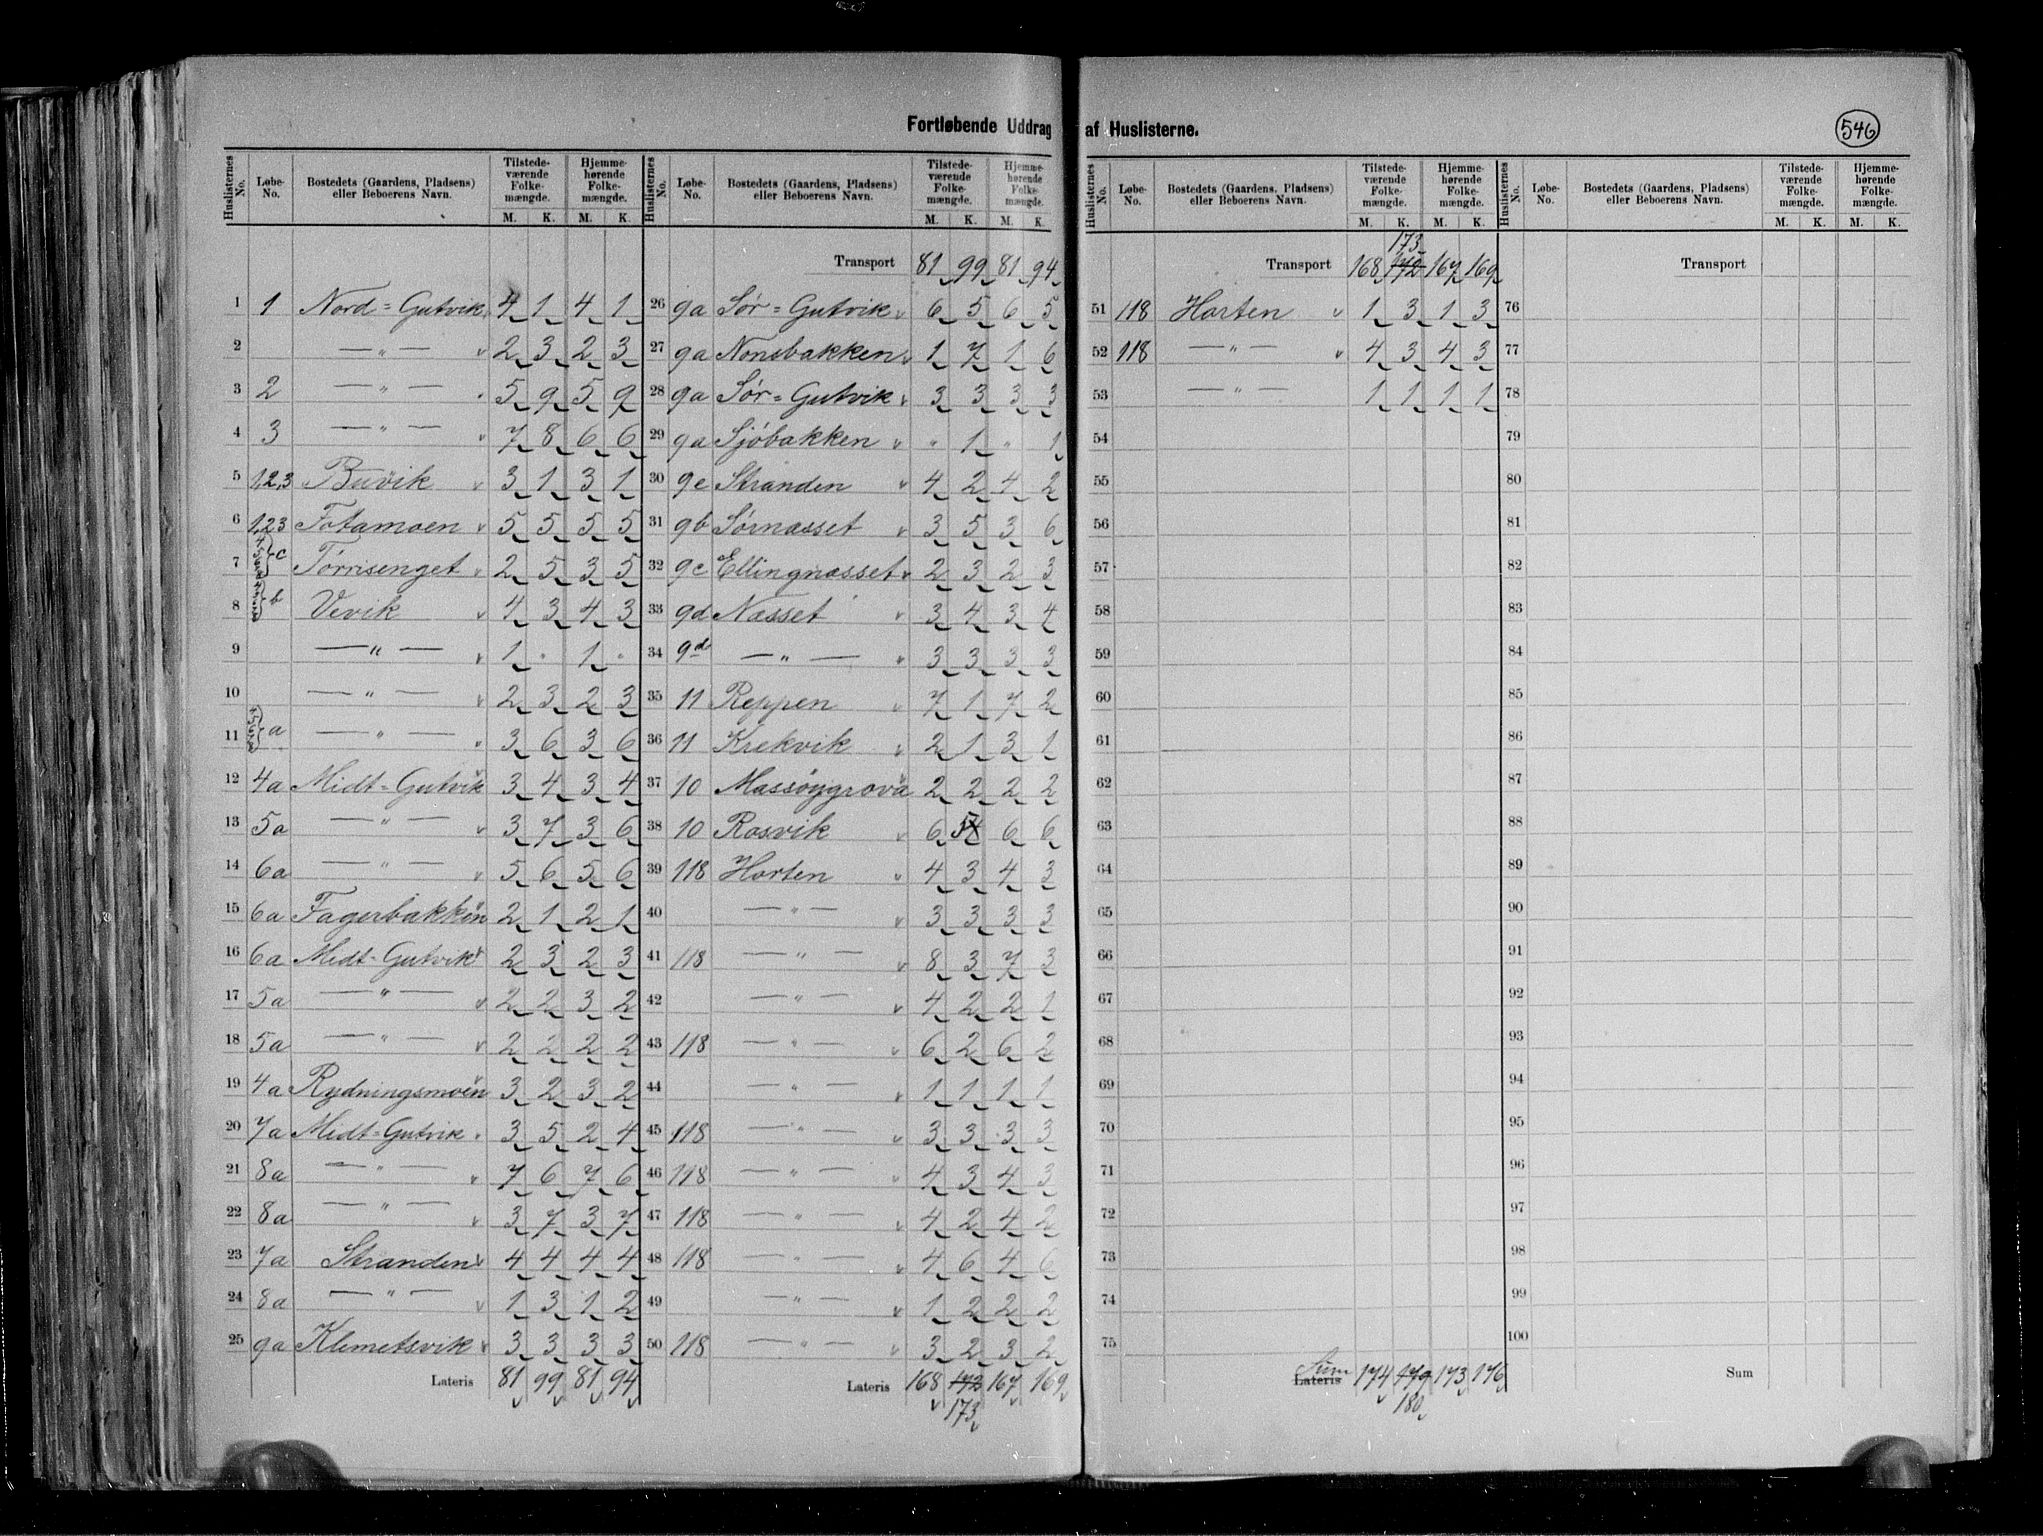 Fortløbende Uddrag af Huslisterne.
546
Huslisternes No. Løbe-No. Bostedets (Gaardens, Pladsens) eller Beboerens Navn. Tilstedeværende Folkemængde. M. K. Hjemmehørende Folkemængde. M. K.
1 1 Nord=Gutvik 4 1 4 1
2 —"— 2 3 2 3
3 2 —"— 5 9 5 9
4 3 —"— 7 8 6 6
5 1,2,3 Buvik 3 1 3 1
6 1,2,3 Fotamoen 5 5 5 5
7 c Tørrisenget 2 5 3 5
8 b Vevik 4 3 4 3
9 —"— 1 " 1 "
10 —"— 2 3 2 3
11 a —"— 3 6 3 6
12 4a Midt=Gutvik 3 4 3 4
13 5a —"— 3 7 3 6
14 6a —"— 5 6 5 6
15 6a Fagerbakken 2 1 2 1
16 6a Midt-Gutvik 2 3 2 3
17 5a —"— 2 2 3 2
18 5a —"— 2 2 2 2
19 4a Rydningsmoen 3 2 3 2
20 7a Midt=Gutvik 3 5 2 4
21 8a —"— 7 6 7 6
22 8a —"— 3 7 3 7
23 7a Stranden 4 4 4 4
24 8a —"— 1 3 1 2
25 9a Klemetsvik 3 3 3 3
Lateris 81 99 81 94
Huslisternes No. Løbe-No. Bostedets (Gaardens, Pladsens) eller Beboerens Navn. Tilstedeværende Folkemængde. M. K. Hjemmehørende Folkemængde. M. K.
Transport 81 99 81 94
26 9a Sør=Gutvik 6 5 6 5
27 9a Nonsbakken 1 7 1 6
28 9a Sør=Gutvik 3 3 3 3
29 9a Sjöbakken " 1 " 1
30 9e Stranden 4 2 4 2
31 9b Sørnæsset 3 5 3 6
32 9c Ellingnæsset 2 3 2 3
33 9d Næsset 3 4 3 4
34 9d —"— 3 3 3 3
35 11 Reppen 7 1 7 2
36 11 Krekvik 2 1 3 1
37 10 Massöygrova 2 2 2 2
38 10 Rosvik 6 5 6 6
39 118 Horten 4 3 4 3
40 —"— 3 3 3 3
41 118 —"— 8 3 7 3
42 —"— 4 2 2 1
43 118 —"— 6 2 6 2
44 —"— 1 1 1 1
45 118 —"— 3 3 3 3
46 118 —"— 4 3 4 3
47 118 —"— 4 2 4 2
48 118 —"— 4 6 4 6
49 —"— 1 2 2 2
50 118 —"— 3 2 3 2
Lateris 168 172 167 169
173
Huslisternes No. Løbe-No. Bostedets (Gaardens, Pladsens) eller Beboerens Navn. Tilstedeværende Folkemængde. M. K. Hjemmehørende Folkemængde. M. K.
173
Transport 168 172 167 169
51 118 Horten 1 3 1 3
52 118 —"— 4 3 4 3
53 —"— 1 1 1 1
54
55
56
57
58
59
60
61
62
63
64
65
66
67
68
69
70
71
72
73
74
75
Sum
Lateris 174 179 173 176
180
Huslisternes No. Løbe-No. Bostedets (Gaardens, Pladsens) eller Beboerens Navn. Tilstedeværende Folkemængde. M. K. Hjemmehørende Folkemængde. M. K.
Transport
76
77
78
79
80
81
82
83
84
85
86
87
88
89
90
91
92
93
94
95
96
97
98
99
100
Sum